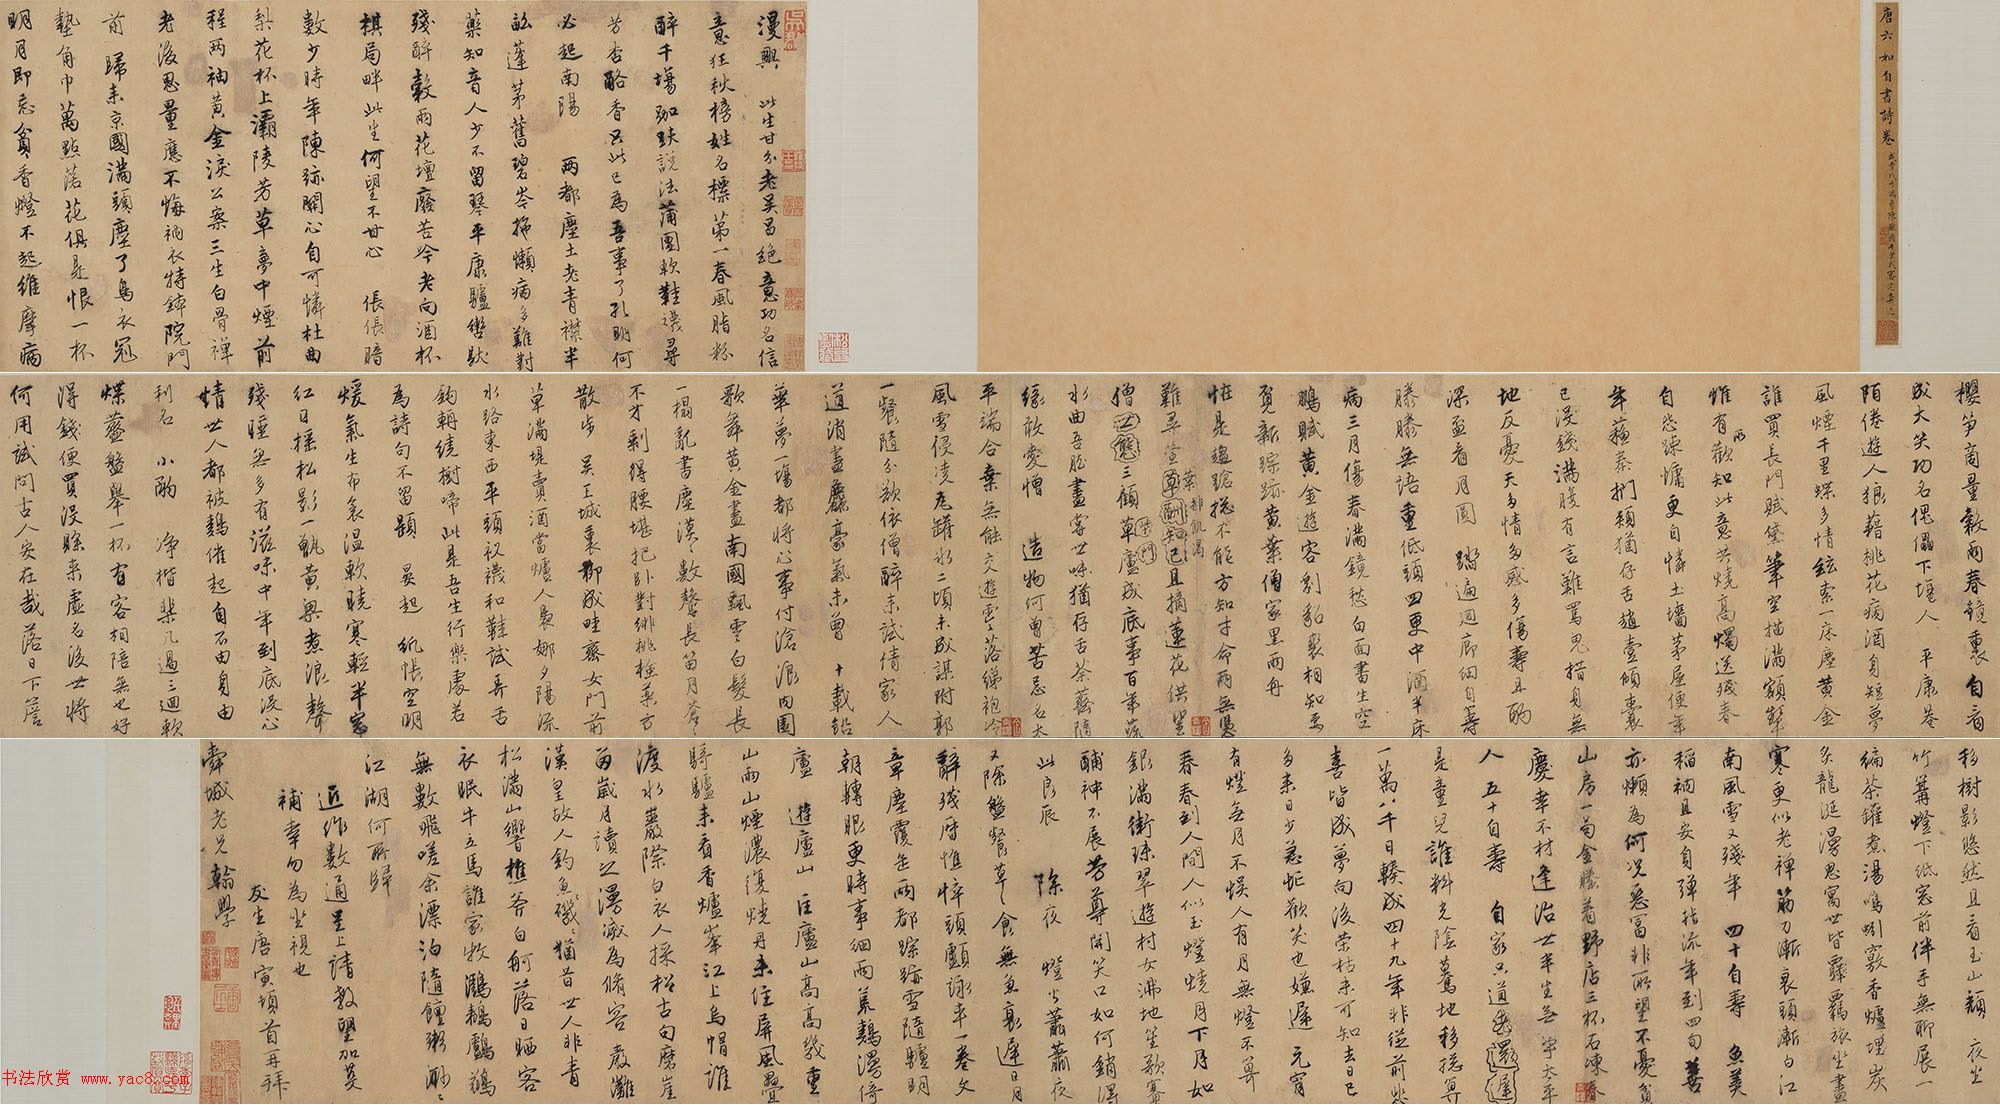 唐六如自書詩卷
漫興 此生甘分老吳昌絕意功名信
意狂秋榜姓名標第一春風脂粉
醉千場跏趺說法蒲團軟鞋襪尋
芳杏酪香只此已為吾事了孔明何
必起南陽 兩都塵土老青襟半
畝蓬茅舊碧岑擁懶病多難對
藥知音人少不留琴平康驢轡馱
殘醉穀雨花壇廢苦吟老向酒杯
棋局畔此生何望不甘心 倀倀暗
數少時年陳跡關心自可憐杜曲
梨花杯上灞陵芳草夢中煙前
程兩袖黃金淚公案三生白骨禪
老後思量應不悔衲衣持鉢院門
前 歸來京國滿頭塵了烏衣冠
墊角巾萬點落花俱是恨一杯
明月即忘貧香燈不起維摩病
櫻笋商量穀雨春鏡裏自看
成大笑功名傀儡下場人 平康巷
陌倦遊人狼藉桃花病酒身短夢
風煙千里蝶多情絃索一床塵黃金
誰買長門賦黛筆空描滿額顰
雖有歡知此意共燒高燭送殘春
自怨疎慵更自憐土墻茅屋便年
年蘓秦捫頰猶存舌趙壹傾囊
已沒錢滿腹有言難罵鬼措身無
地反憂天多情多感多傷壽且酌
深盃看月圓 踏遍迴廊細自籌
滕滕無語重低頭四更中酒半床
病三月傷春滿鏡愁白面書生空
鵩賦黃金遊客剝貂裘相知為
賀新踪跡黃葉僧家黑雨舟
難尋萱草酬知己且摘蓮花供聖
僧三顧草廬成底事百年蔬
水曲吾肱盡嘗世味猶存舌茶薺隨
緣敢愛憎 造物何曾苦忌名太
平端合棄無能交遊零落綈袍冷
風雪侵凌瓦罐冰二頃未成謀附郭
一餐隨分欲依僧醉來試倩家人
道消盡麤豪氣未曾 十載鉛
華夢一場都將心事付滄浪內園
歌舞黃金盡南國飄零白髮長
一榻亂書塵漠漠數聲長笛月蒼蒼
不才剩得腰堪把臥對緋桃檢藥方
散步 吳王城裏柳成畦齊女門前
草滿堤賣酒當爐人裊娜夕陽流
水路東西平頭衩襪和鞋試弄舌
鈎輈繞樹啼此是吾生行樂處若
為詩句不留題 晏起 紙帳空明
煖氣生布衾溫軟曉寒輕半窗
紅日搖松影一甑黃粱煮浪聲
殘睡無多有滋味中年到底沒心
情世人都被鷄催起自不由身由
利名 小酌 淨楷棐几過三週軟
煠虀盤舉一杯有客相陪無也好
得錢便買沒賒來虛名後世將
何用試問古人安在哉落日下簷
移樹影悠然且看玉山頹 夜坐
竹篝燈下紙窓前伴手無聊展一
編茶罐煮湯鳴蚓竅香爐埋炭
炙龍涎漫思寓世皆羈旅坐盡
寒更似老禪筋力漸衰頭漸白江
南風雪又殘年 四十自壽 魚羹
稻衲且安身彈指流年到四旬善
亦懶為何況惡富非所望不憂貧
山房一局金縢着野店三杯石凍春
慶幸不材逢治世半生無事太平
人 五十自壽 自家只道
是童兒誰料光陰驀地移總算
一萬八千日輳成四十九年非從前悲
喜皆成夢向後榮枯未可知去日已
多來日少急忙歡笑也嫌遲 元宵
有燈無月不娛人有月無燈不算
春春到人間人似玉燈燒月下月如
銀滿街珠翠遊村女沸地笙歌賽
酺神不展芳尊開笑口如何銷得
此良辰 除夜 燈火蕭蕭夜
又除盤餐草草食無魚衰遲日月
辭殘曆憔悴頭顱詠卒一卷文
章塵覆瓿兩都踪跡雪隨驢明
朝轉眼更時事細雨荒鷄漫倚
廬 遊廬山 匡廬山高高幾重
山雨山煙濃復燒丹來住屏風疊
騎驢來看香爐峯江上烏帽誰
渡水巖際白衣人採松古句磨崖
苗歲月讀之漫滅為脩容 嚴灘
漢皇故人釣魚磯漁磯猶昔世人非青
松滿山響樵斧白舸落日曬客
衣眠牛立馬誰家牧鸂鶒鸕鶿
無數飛嗟余漂泊隨饘粥渺渺
江湖何所歸
近作數通呈上請教望加芟
補幸勿為坐視也
友生唐寅頓首再拜
舜城老兄翰學
书法欣赏 www.yac8.com